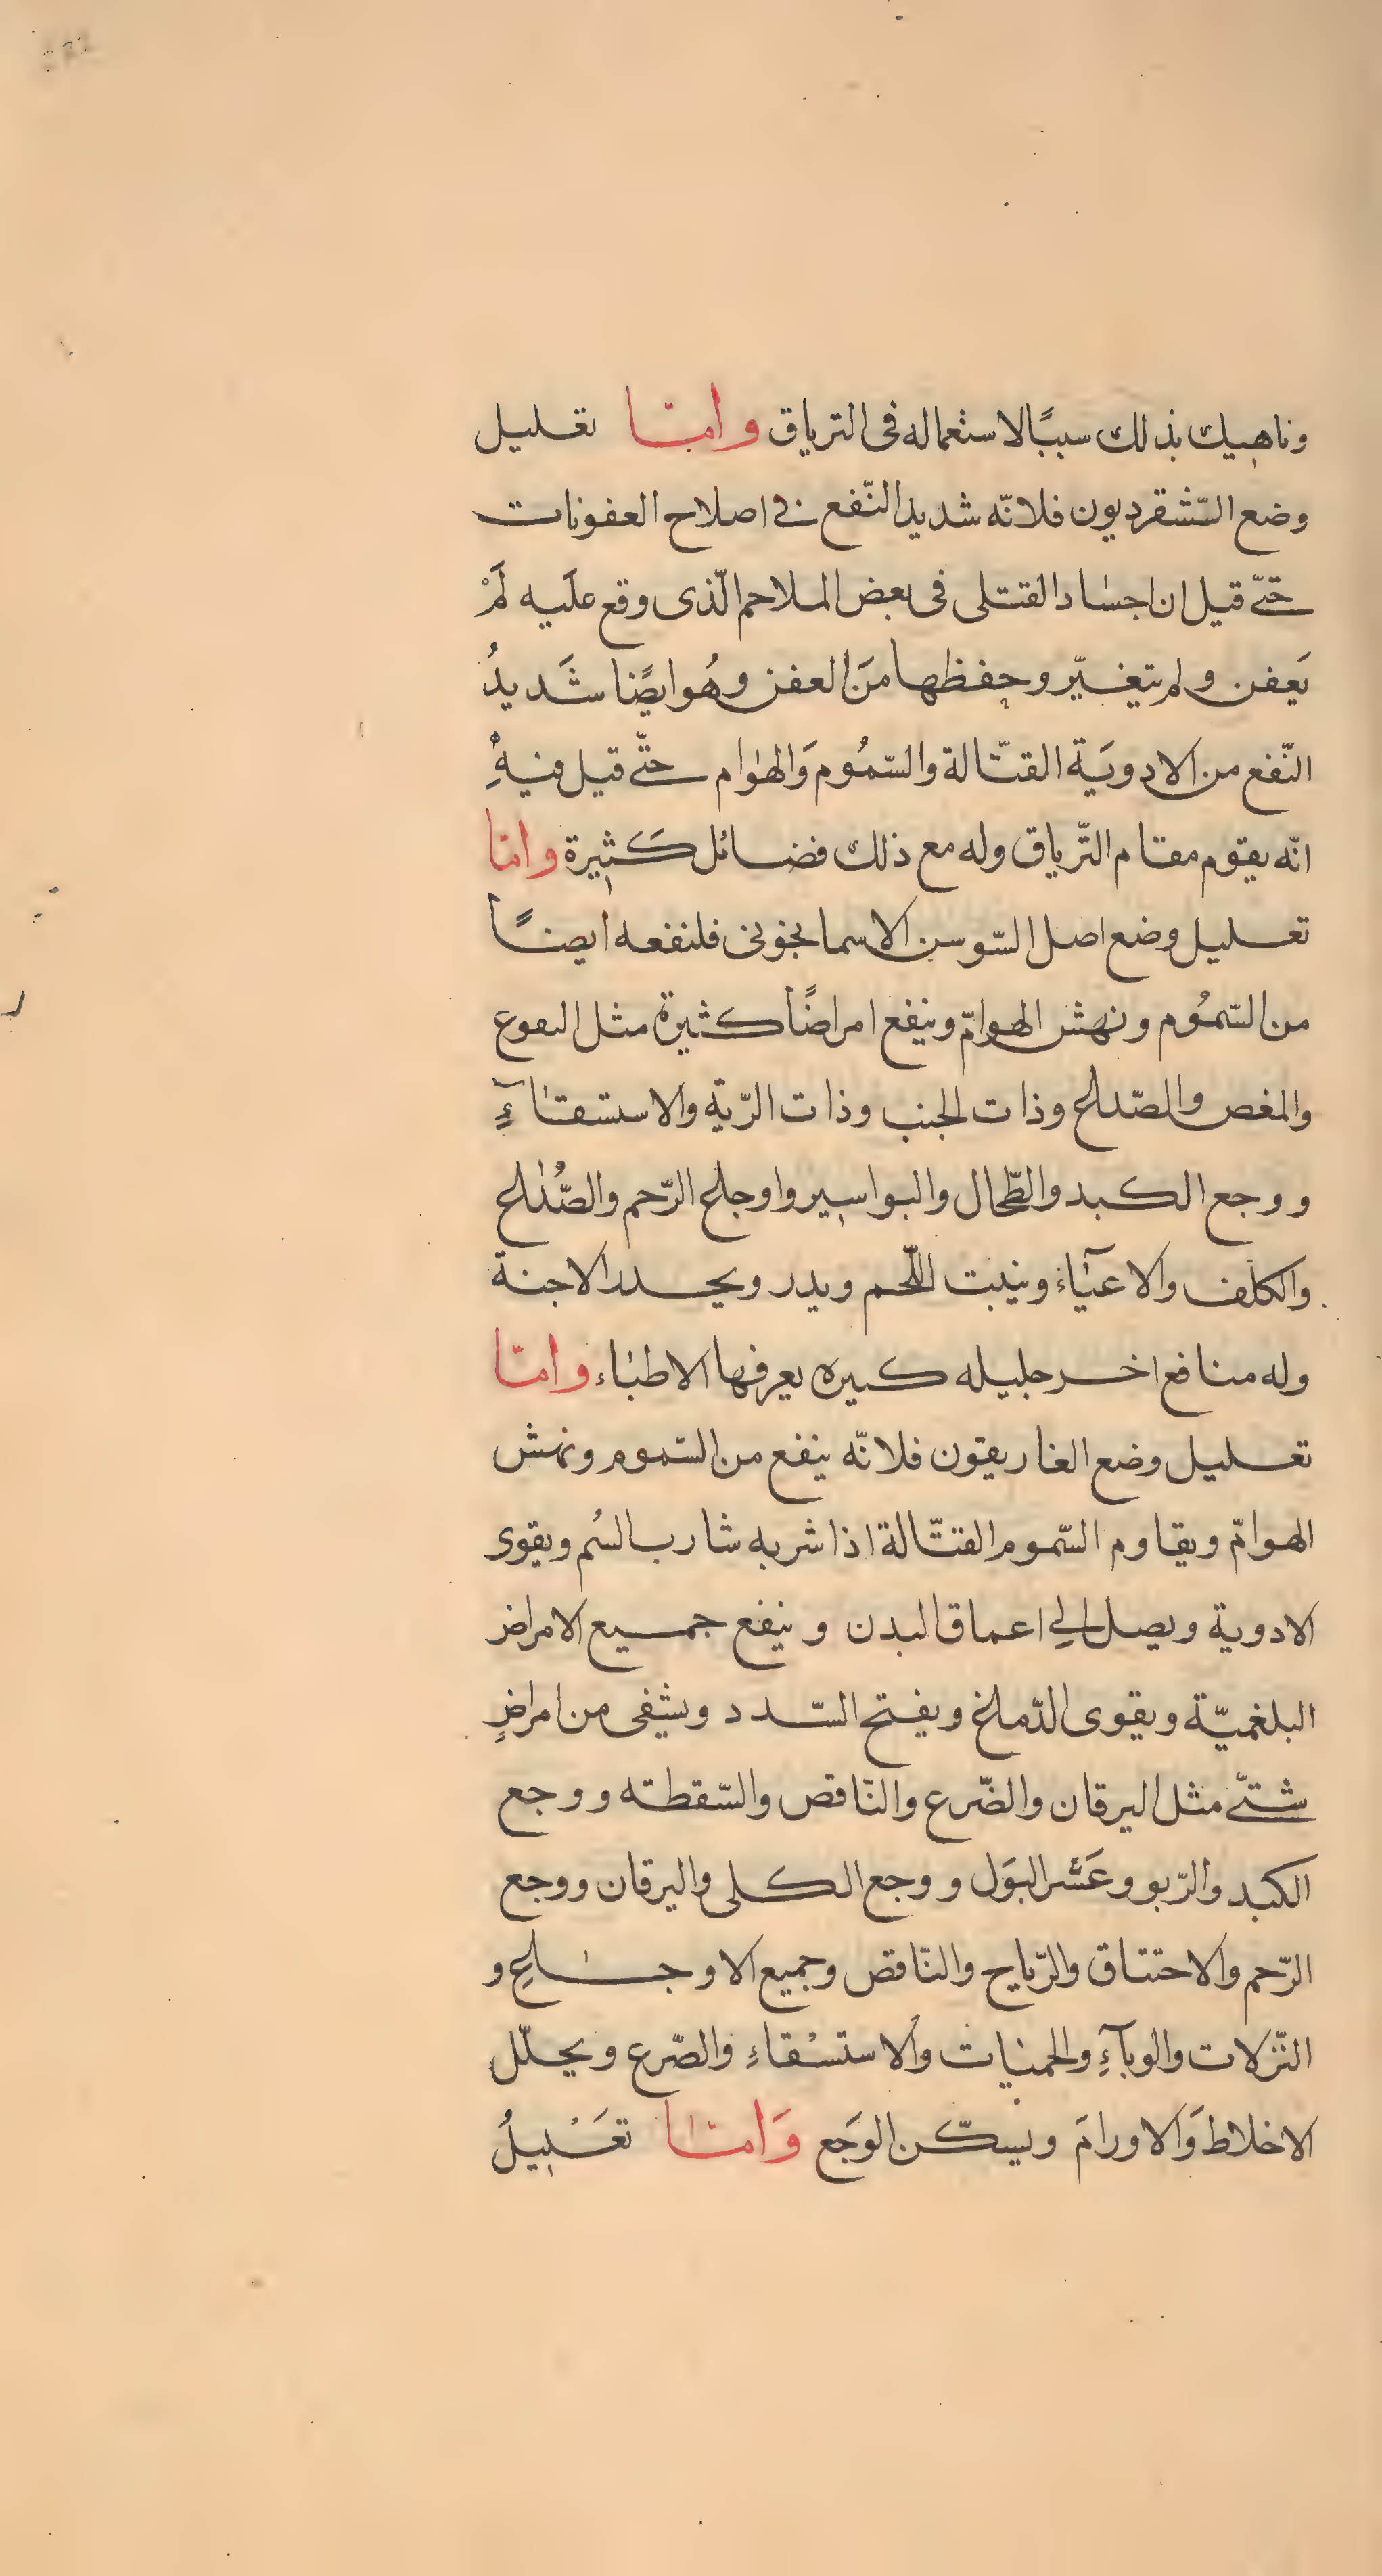 وناهيك بذلك سببًا لاستعماله فى الترياق وامّا تعليل
وضع الشّشقرديون فلانّه شديد النّفع فى اصلاح العفونات
حتّى قيل ان اجساد القتلى فى بعض الملاحم الّذى وقع عليه لَمْ
يَعفن ولم يتغيّر وحفظها منَ العفن وهُو ايضًا شَديدُ
النّفع من الادويَة القتّالة والسّمُوم وَالهوام حتّى قيل فيهِ
انّه يقوم مقام التّرياق وله مع ذلك فضائل كَثيرة وامّا
تعليل وضع اصل السّوسن الاسمانجونى فلنفعه ايضًا
من السّمُوم ونهش الهوامّ وينفع امراضًا كثيرة مثل
والمغص والصّداع وذات الجنب وذات الرّية والاستسقآءِ
ووجع الكبد والطّحال والبواسير واوجاع الرّحم والصُّداع
والكلف والاعيآء وينبت اللّحم ويدر ويحدر الاجنة
وله منافع اخر جليله كبيره يعرفها الاطبّاء وامّا
تعليل وضع الغاريقون فلانّه ينفع من السّموم ونهش
الهوامّ ويقاوم السّموم القتّالة اذا شربه شارب السُم ويقوى
الادوية ويصل الى اعماق البدن وينفع جميع الامراض
البلغميّة ويقوى الدّماغ ويفتح السّدد ويشفى من امراضٍ
شتّى مثل اليرقان والصّرع والنّاقض والسّقطته ووجع
الكبد والرّبو وعَسْر البَول ووجع الكلى واليرقان ووجع
الرّحم والاختناق والرّياح والنّاقض وجميع الاوجاع و
النّزلات والوبآءِ والحميات والاستسْقاءِ والصّرع ويحلّل
الاخلاط وَالاورامَ ويسكّن الوَجَع وَامّا تعَليلُ